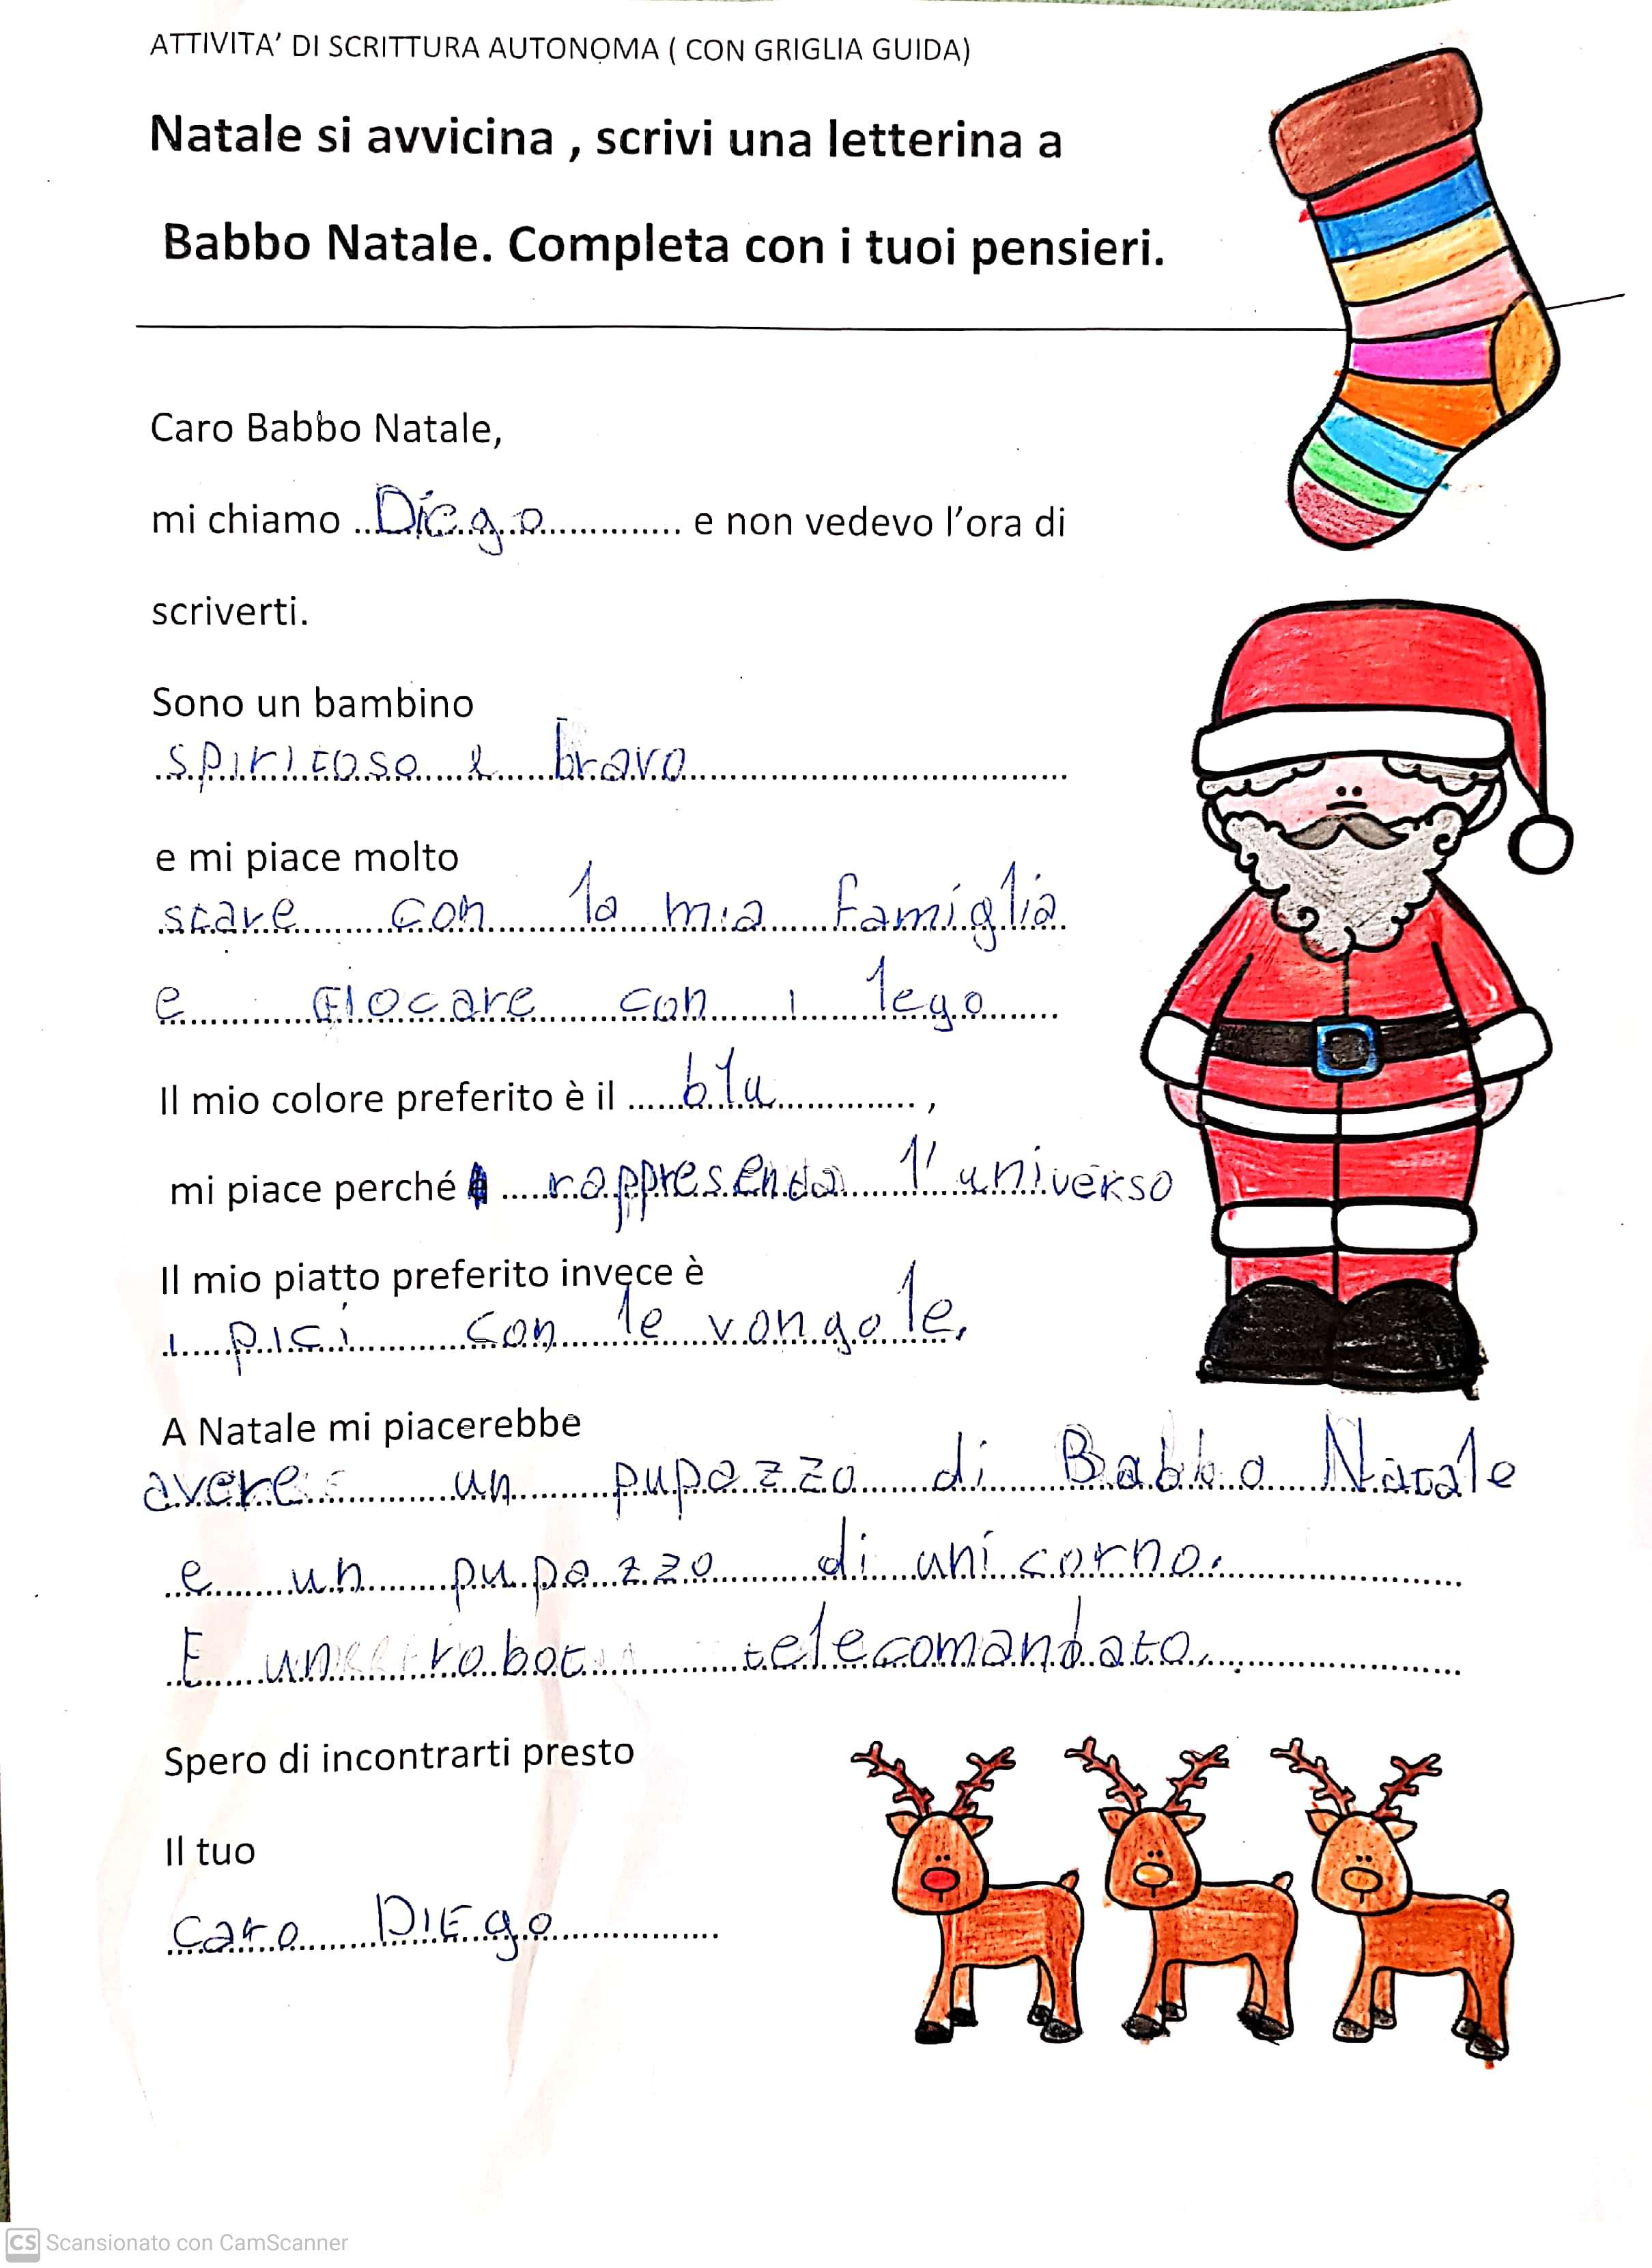 ATTIVITA' DI SCRITTURA AUTONOMA ( CON GRIGLIA GUIDA)
Natale si avvicina , scrivi una letterina a
Babbo Natale. Completa con i tuoi pensieri.
Caro Babbo Natale,
mi chiamo ..Diego............. e non vedevo l'ora di
scriverti.
Sono un bambino
spiritoso e bravo
e mi piace molto
stare con la mia famiglia
e Giocare con i lego
Il mio colore preferito è il ......blu.............. ,
mi piace perché ....rappresenda l'universo
Il mio piatto preferito invece è
i pici con le vongole.
A Natale mi piacerebbe
avere un pupazzo di Babbo Natale
e un pupazzo di unicorno.
E un robot telecomandato.
Spero di incontrarti presto
Il tuo
caro DIEgo
CS Scansionato con CamScanner